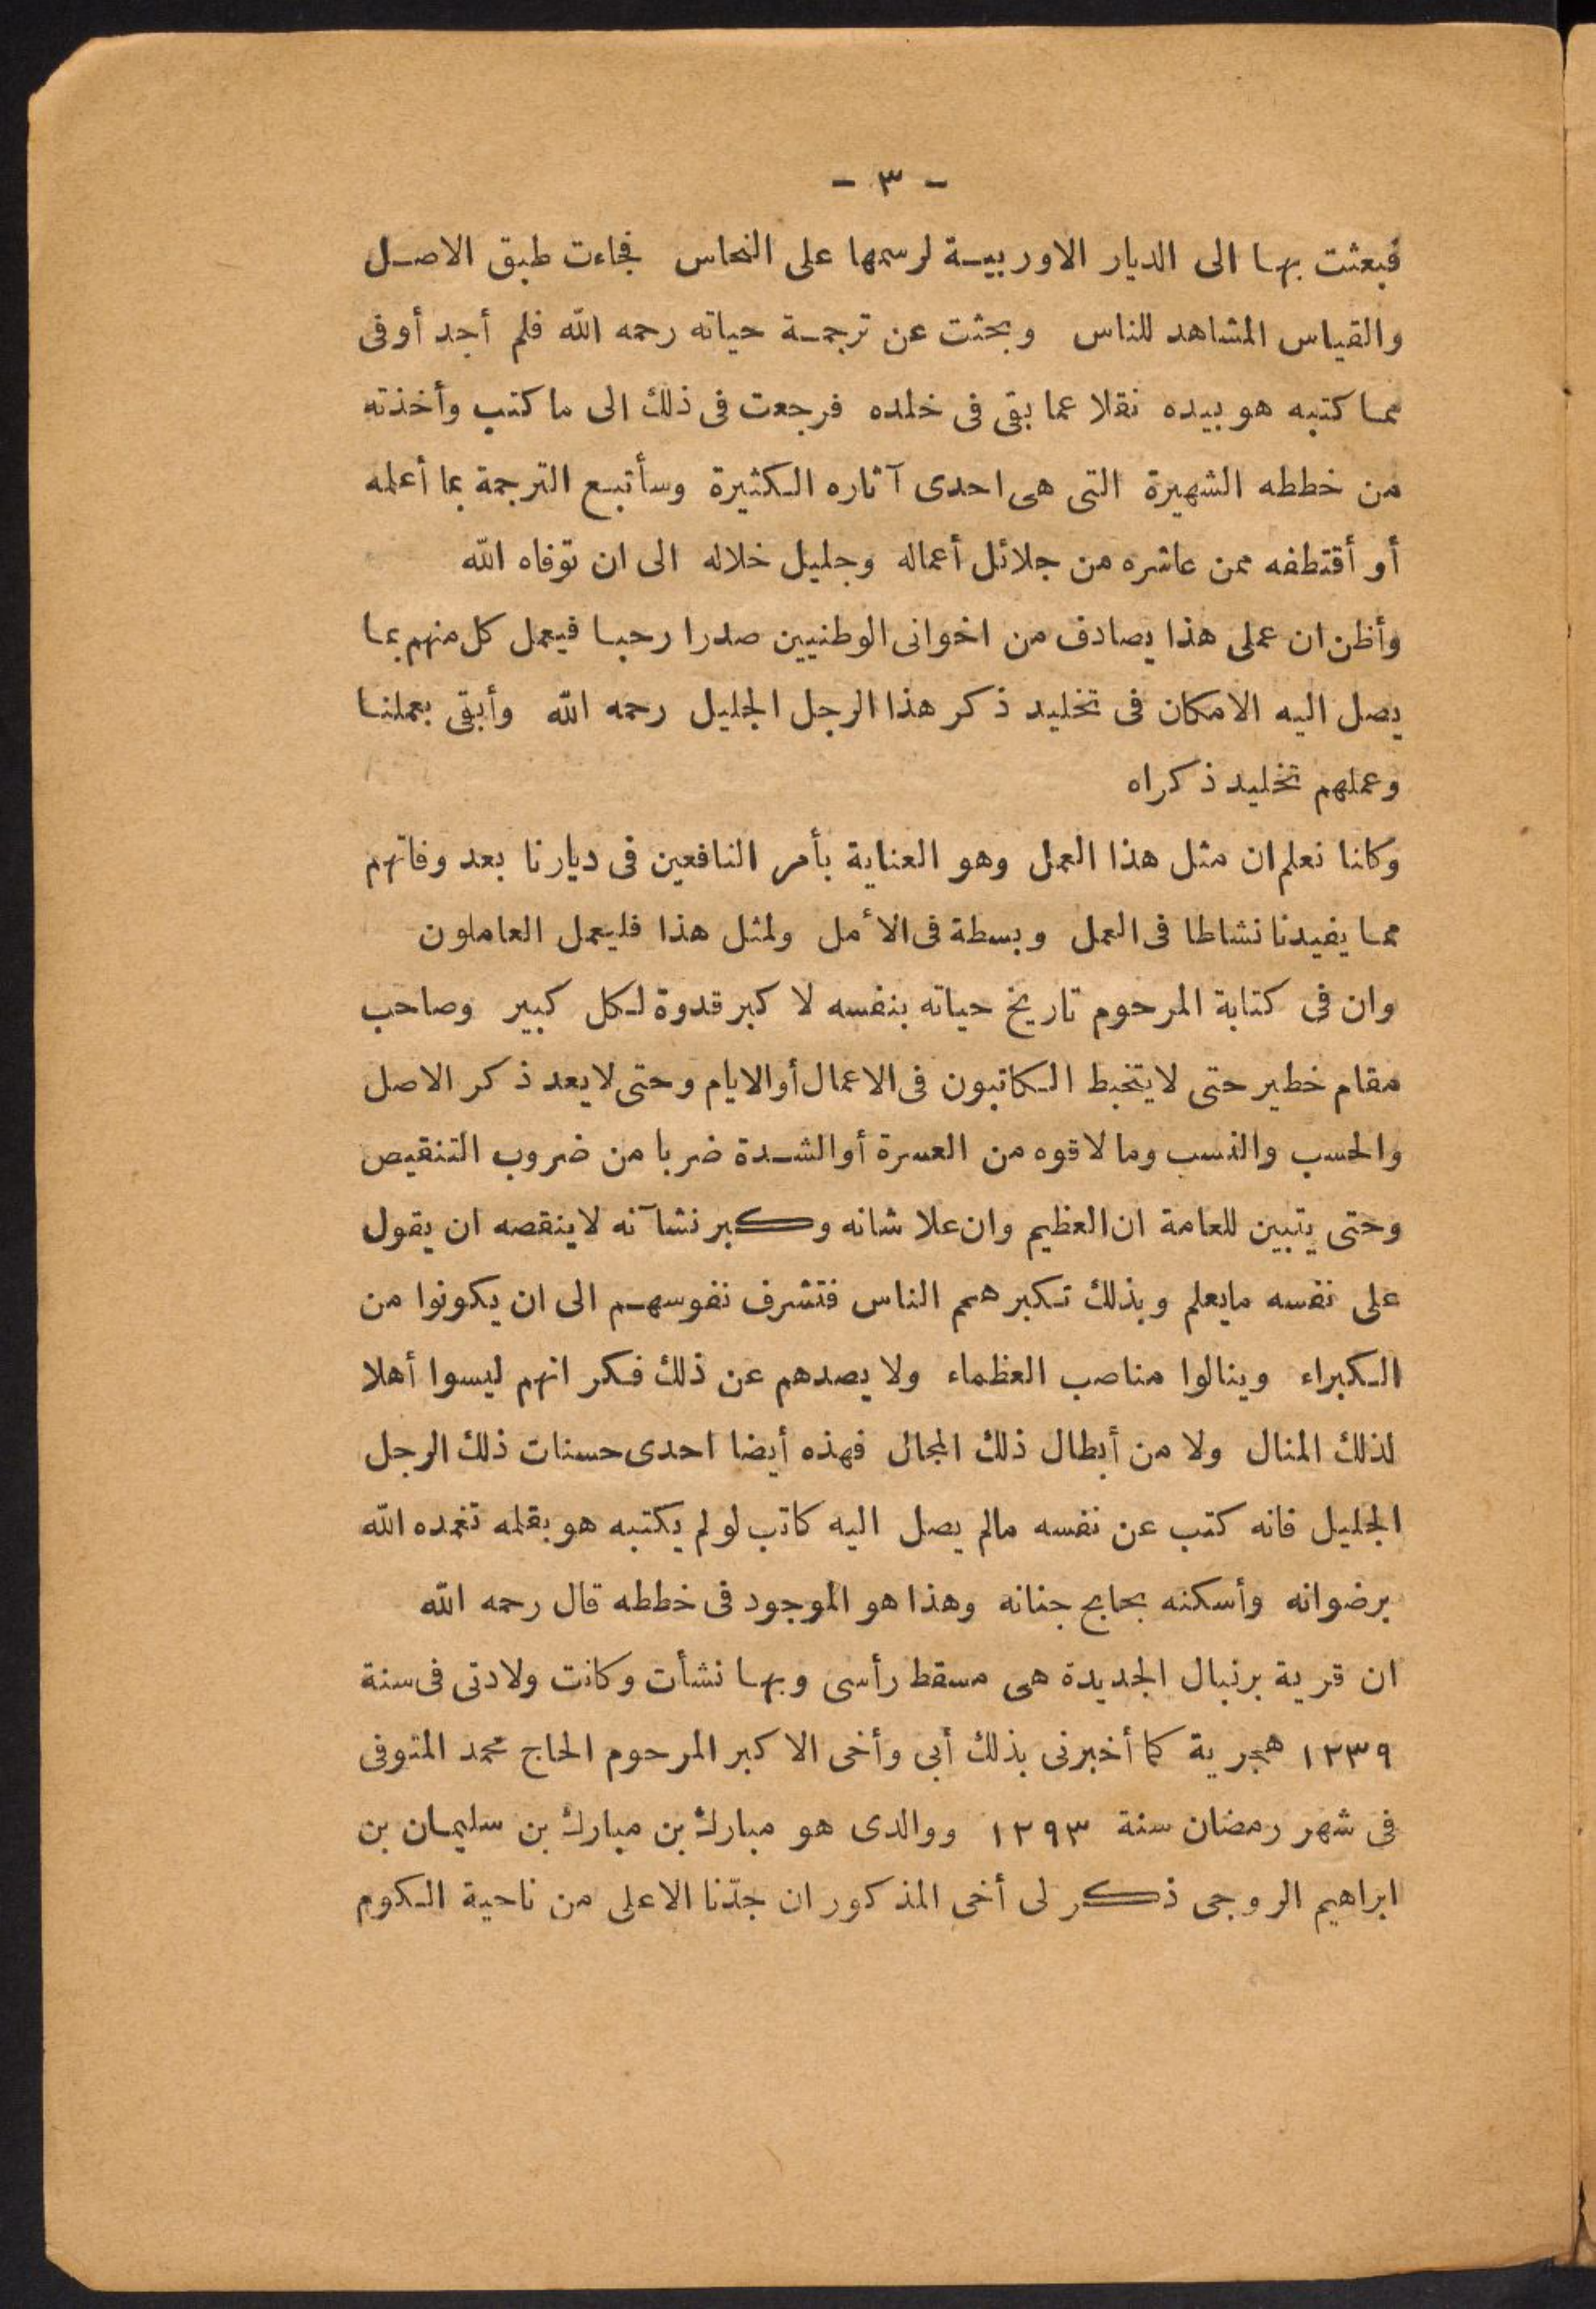 - ٣ -
فبعثت بها الى الديار الاوربية لرسمها على النحاس فجاءت طبق الاصل
والقياس المشاهد للناس وبحثت عن ترجمة حياته رحمه الله فلم أجد أوفى
مما كتبه هو بيده نقلا عما بقى فى خلده فرجعت فى ذلك الى ما كتب وأخذته
من خططه الشهيرة التى هى احدى آثاره الكثيرة وسأتبع الترجمة بما أعلمه
أو أقتطفه ممن عاشره من جلائل أعماله وجليل خلاله الى ان توفاه الله
وأظن ان عملى هذا يصادف من اخوانى الوطنيين صدرا رحبا فيعمل كل منهم بما
يصل اليه الامكان فى تخليد ذكر هذا الرجل الجليل رحمه الله وأبقى بعملنا
وعملهم تخليد ذكراه
وكانا نعلم ان مثل هذا العمل وهو العناية بأمر النافعين فى ديارنا بعد وفاتهم
مما يفيدنا نشاطا فى العمل وبسطة فى الأمل ولمثل هذا فليعمل العاملون
وان فى كتابة المرحوم تاريخ حياته بنفسه لا كبر قدوة لكل كبير وصاحب
مقام خطير حتى لا يتخبط الكاتبون فى الاعمال أو الايام وحتى لا يعد ذكر الاصل
والحسب والنسب وما لاقوه من العسرة أو الشدة ضربا من ضروب التنقيص
وحتى يتبين للعامة ان العظيم وان علا شانه وكبر نشآنه لا ينقصه ان يقول
على نفسه مايعلم وبذلك تكبر همم الناس فتشرف نفوسهم الى ان يكونوا من
الكبراء وينالوا مناصب العظماء ولا يصدهم عن ذلك فكر انهم ليسوا أهلا
لذلك المنال ولا من أبطال ذلك المجال فهذه أيضا احدى حسنات ذلك الرجل
الجليل فانه كتب عن نفسه مالم يصل اليه كاتب لو لم يكتبه هو بقلمه تغمده الله
برضوانه وأسكنه بحابح جنانه وهذا هو الموجود فى خططه قال رحمه الله
ان قرية برنبال الجديدة هى مسقط رأسى وبها نشأت وكانت ولادتى فى سنة
١٢٣٩ هجرية كما أخبرنى بذلك أبى وأخى الاكبر المرحوم الحاج محمد المتوفى
فى شهر رمضان سنة ١٢٩٣ ووالدى هو مبارك بن مبارك بن سليمان بن
ابراهيم الروجى ذكر لى أخى المذكور ان جدّنا الاعلى من ناحية الكوم